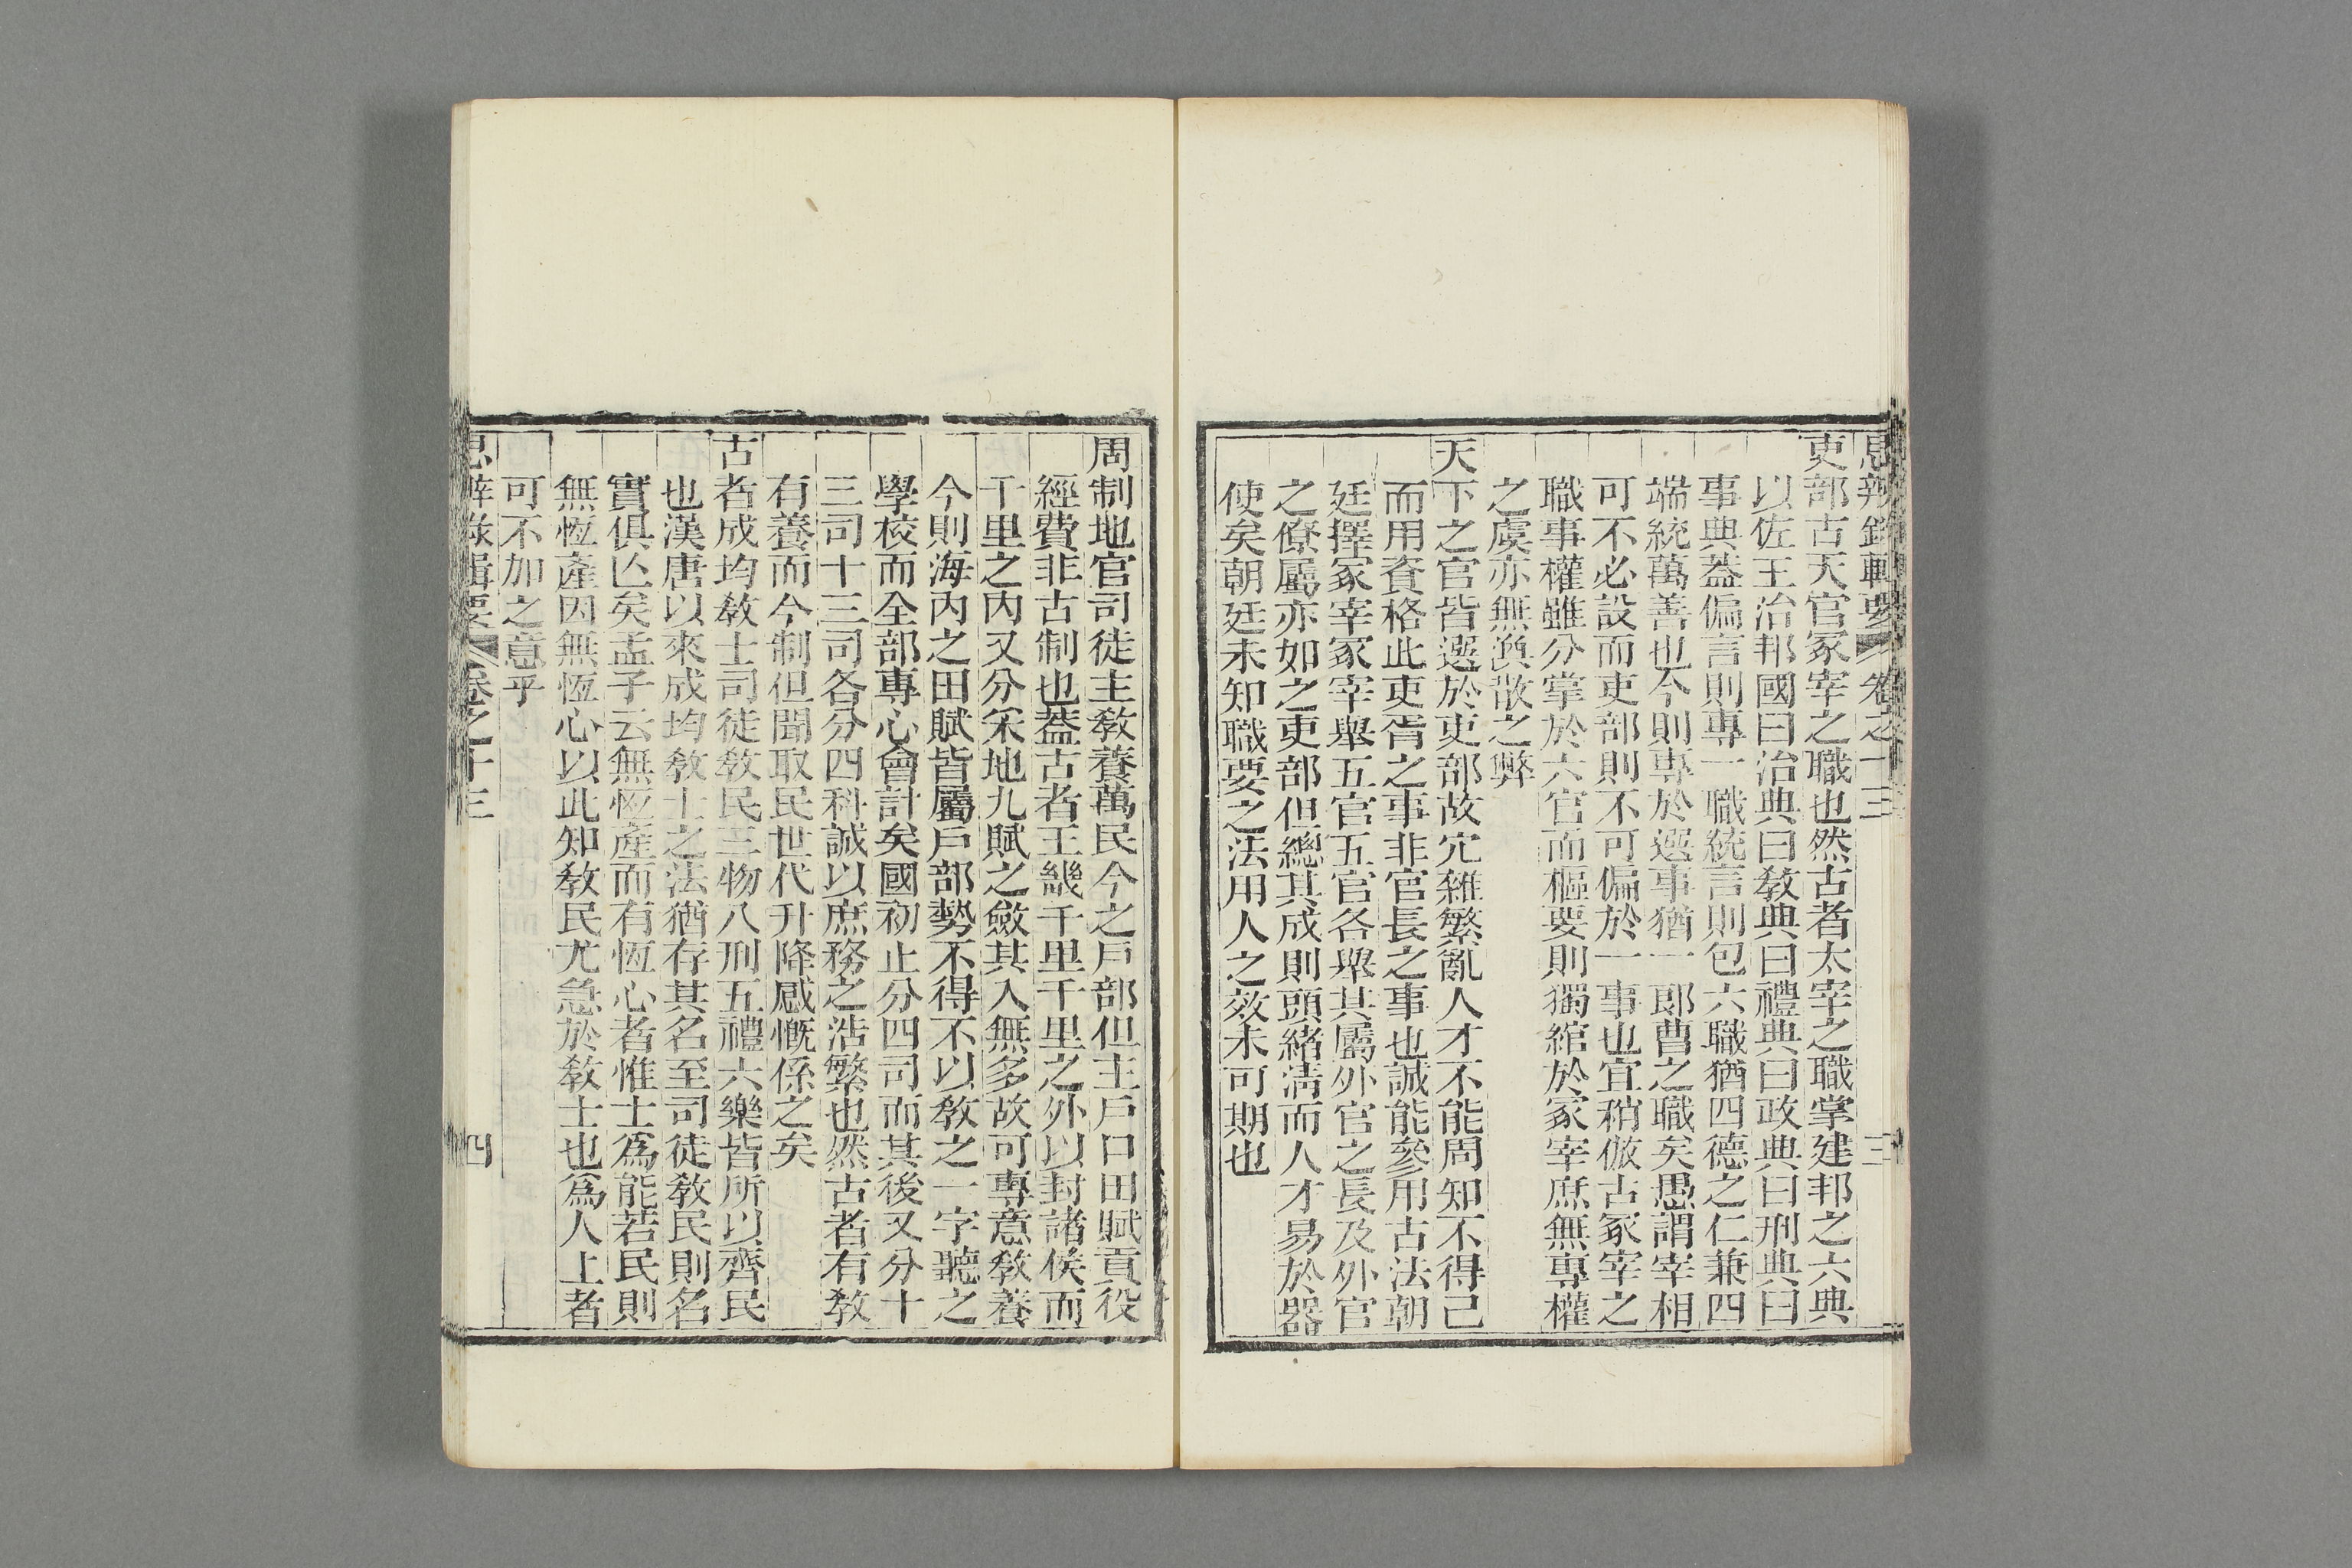 思辨錄輯要 卷之十三 三
吏部古天官冢宰之職也然古者太宰之職掌建邦之六典
以佐王治邦國曰治典曰敎典曰禮典曰政典曰刑典曰
事典葢偏言則專一職統言則包六職猶四德之仁兼四
端統萬善也今則專於選事猶一郞曹之職矣愚謂宰相
可不必設而吏部則不可偏於一事也宜稍倣古冢宰之
職事權雖分掌於六官而樞要則獨綰於冢宰庶無專權
之虞亦無渙散之弊
天下之官皆選於吏部故宂雜繁亂人才不能周知不得已
而用資格此吏胥之事非官長之事也誠能參用古法朝
廷擇冢宰冢宰舉五官五官各舉其屬外官之長及外官
之僚屬亦如之吏部但總其成則頭緒淸而人才易於器
使矣朝廷未知職要之法用人之效未可期也
周制地官司徒主敎養萬民今之戶部但主戶口田賦貢役
經費非古制也葢古者王畿千里千里之外以封諸侯而
千里之內又分釆地九賦之斂其入無多故可專意敎養
今則海內之田賦皆屬戶部勢不得不以敎之一字聽之
學校而全部專心會計矣國初止分四司而其後又分十
三司十三司各分四科誠以庶務之浩繁也然古者有敎
有養而今制但聞取民世代升降感慨係之矣
古者成均敎士司徒敎民三物八刑五禮六樂皆所以齊民
也漢唐以來成均敎士之法猶存其名至司徒敎民則名
實俱亾矣孟子云無恆產而有恆心者惟士爲能若民則
無恆產因無恆心以此知敎民尤急於敎士也爲人上者
可不加之意乎
思辨錄輯要 卷之十三 四